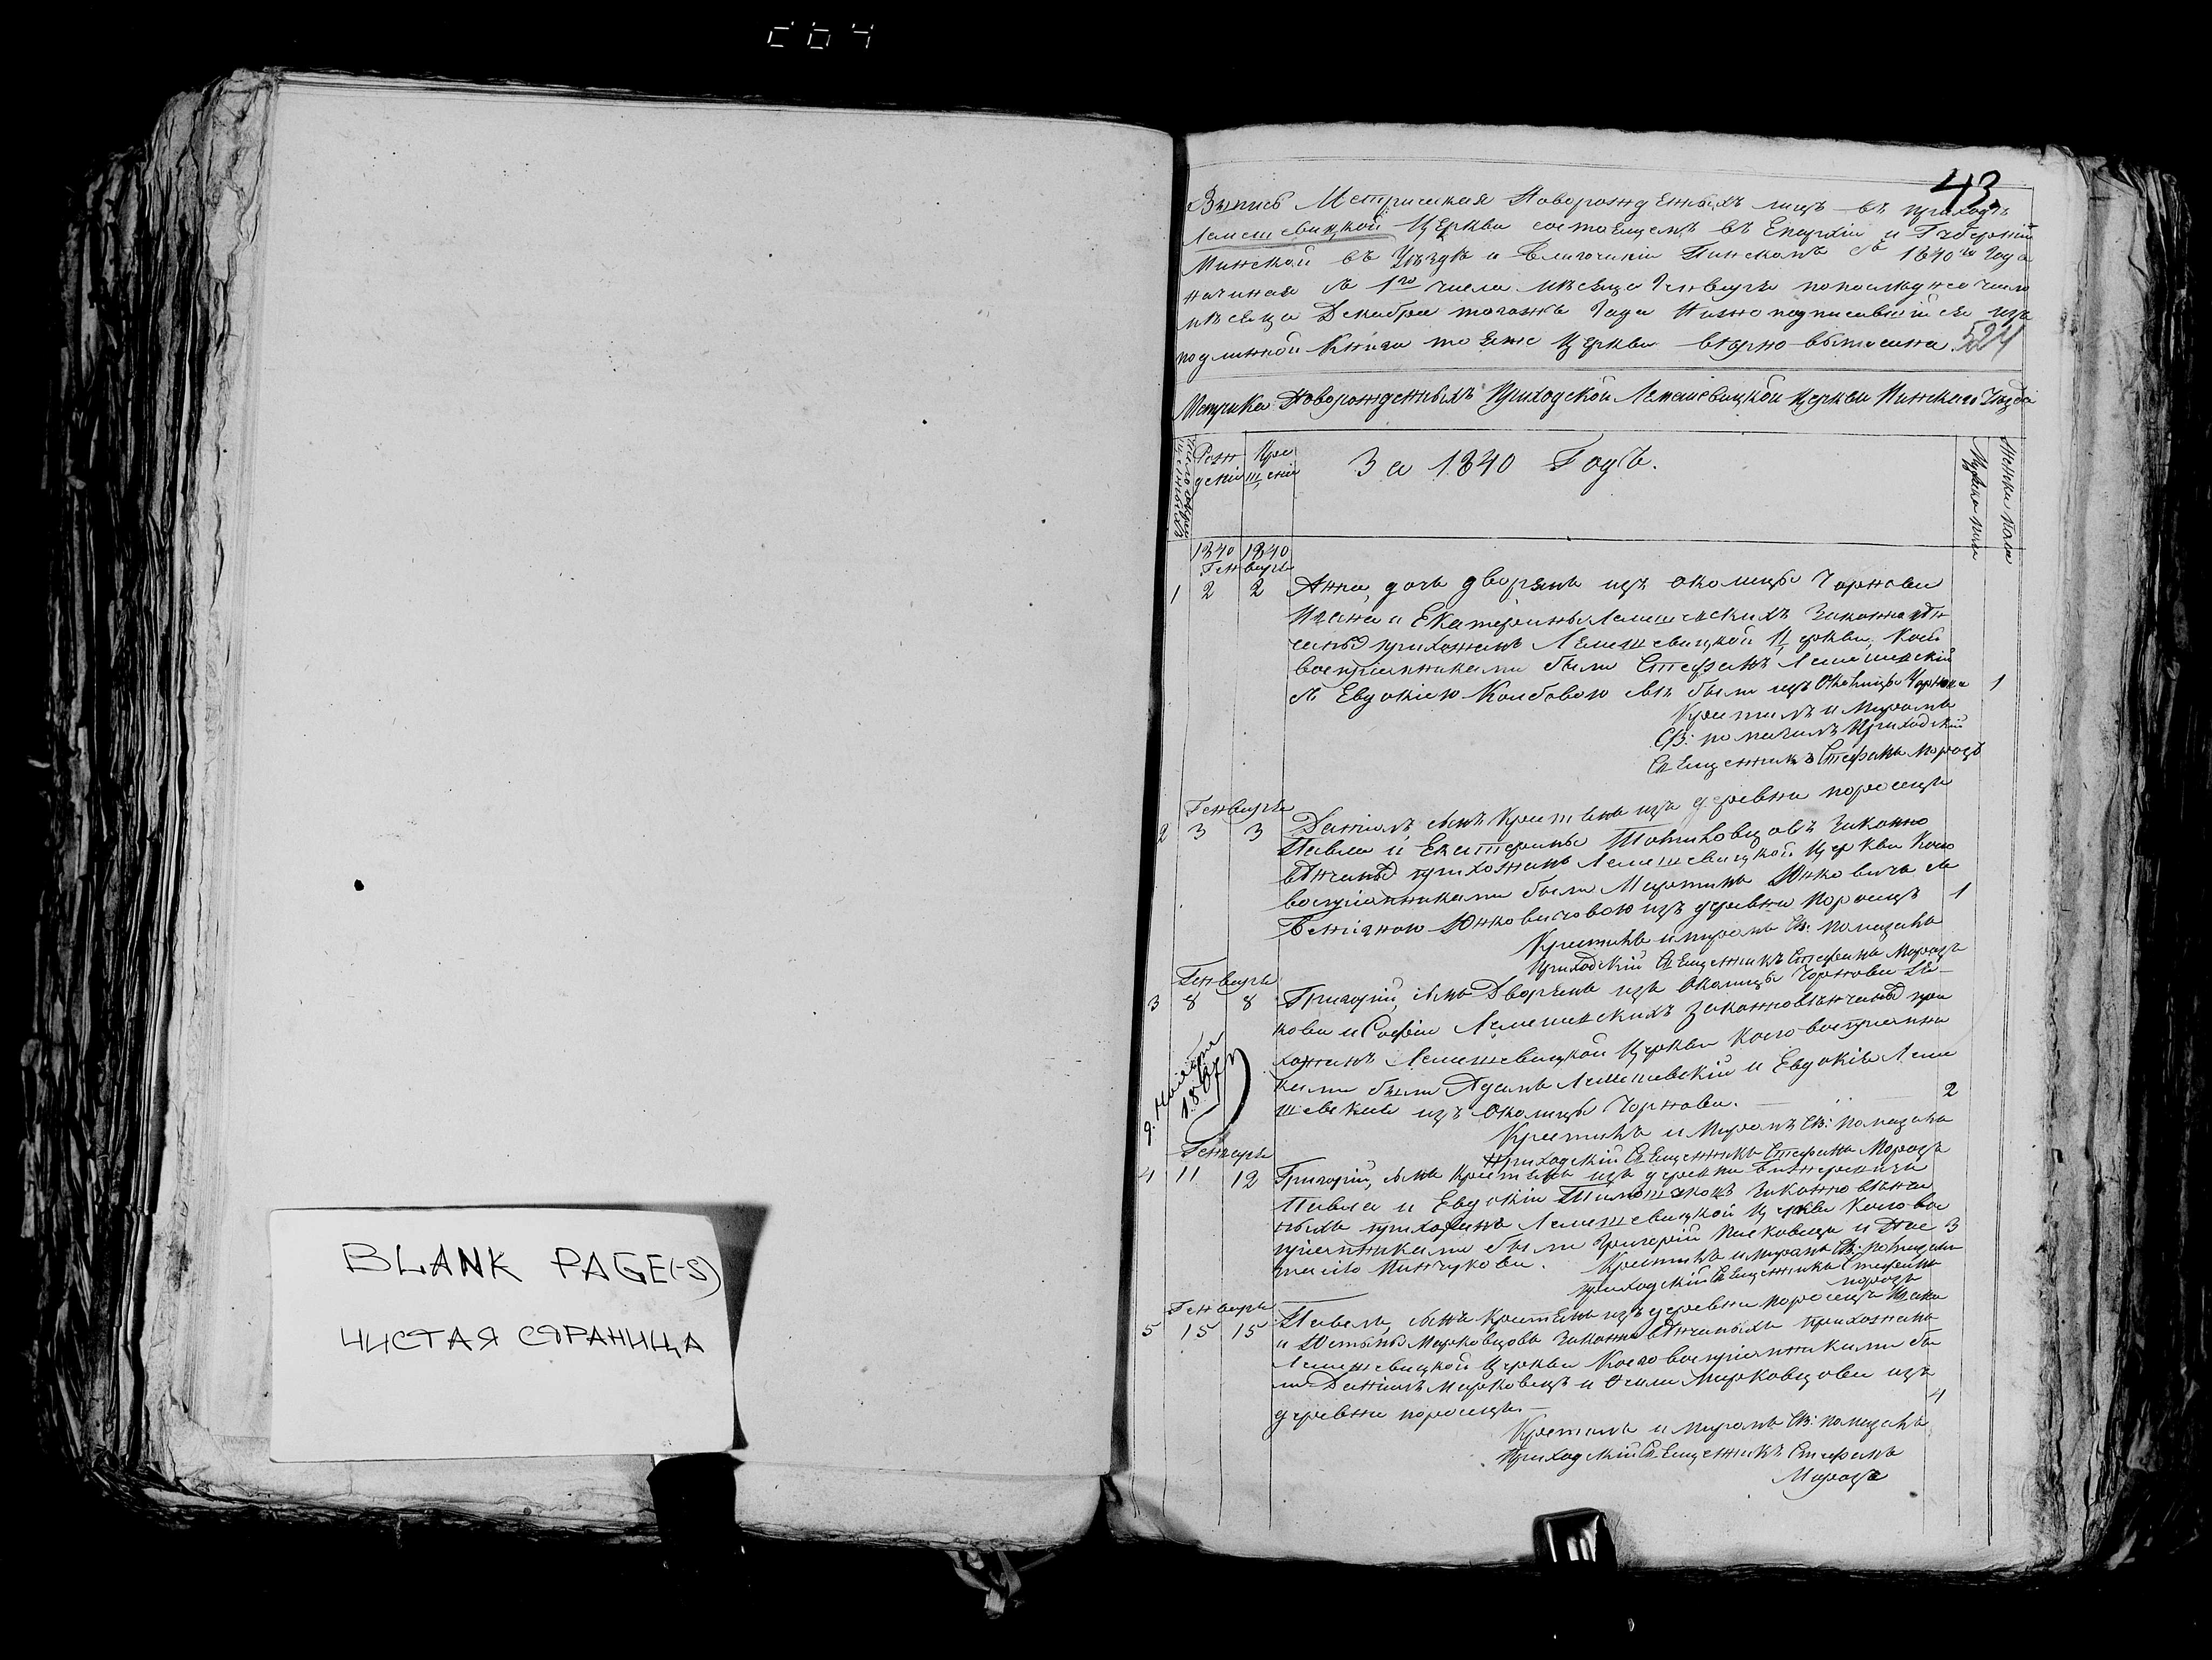 43.
Выпись Метрическая Новорожденныхъ лицъ въ приходѣ
Лемешевицкой Церкви состоящемъ въ Епархіи и Губерніи
Минской въ Уѣздѣ и Благочиніи Пинскомъ съ 1840го Года
начиная съ 1го числа мѣсяца Генваря по последнее число
мѣсяца Декабря тогожъ Года Ниже подписавшимся изъ
подлинной Книги тоеже Церкви вѣрно выписана.
524
Метрика Новорожденныхъ Приходской Лемешевицкой Церкви Пинскаго Уѣзда
Рож Кре
деній щеній
За 1840 Годъ.
Мужеска пола
Женска пола
1840 1840
Генваря
1 2 2 Анна, дочь дворянъ изъ околицы Чорнова
и Екатерины Лемешевскихъ Законновѣн
чаныхъ прихожанъ Лемешевицкой Церкви, коей
воспріемниками были Стефанъ Лемешевскій
съ Евдокіею изъ Околицы Чорнова 1
Крестилъ и Мѵромъ
Св: помазалъ Приходскій
Священникъ Стефанъ Морозъ
Генваря
2 3 3 Даніилъ, сынъ Крестьянъ изъ деревни
Павла и Екатерины Законно
вѣнчаныхъ прихожанъ Лемешевицкой Церкви Коего
воспріемниками были Мартинъ Юнковичъ съ
Юнковичовою изъ деревни 1
Крестилъ и мѵромъ Св: помазалъ
приходскій Священникъ Стефанъ Морозъ
Генваря
3 8 8 Григорій, сынъ Дворянъ изъ Околицы Чорнова Яко-
кова и Софіи Лемешевскихъ Законновѣнчаныхъ при
хожанъ Лемешевицкой Церкви Коего воспріемни
ками были Адамъ Лемешевскій и Евдокія Леме
шевская изъ Околицы Чорнова. 2
Крестилъ и Мѵромъ Св: помазалъ
Приходскій Священникъ Стефанъ Морозъ
Генваря
4 11 12 Григорій, сынъ Крестьянъ изъ деревни
Павла и Евдокіи Законно вѣнча
ныхъ прихожанъ Лемешевицкой Церкви Коего вос
пріемниками были Григорій и Нас 3
тасія Минчукова. Крестилъ и мѵромъ Св: помазалъ
приходскій Священникъ Стефанъ
Морозъ
Генваря
5 15 15 Павелъ, сынъ Крестьянъ изъ деревни
и Юстыны Марковцовъ Законно вѣнчаныхъ прихожанъ
Лемешевицкой Церкви Коего воспріемниками бы
ли Даніилъ Марковецъ и Марковцова изъ
деревни 4
Крестилъ и мѵромъ Св: помазалъ
Приходскій Священникъ Стефанъ
Морозъ
BLANK PAGE(-S)
ЧИСТАЯ СТРАНИЦА